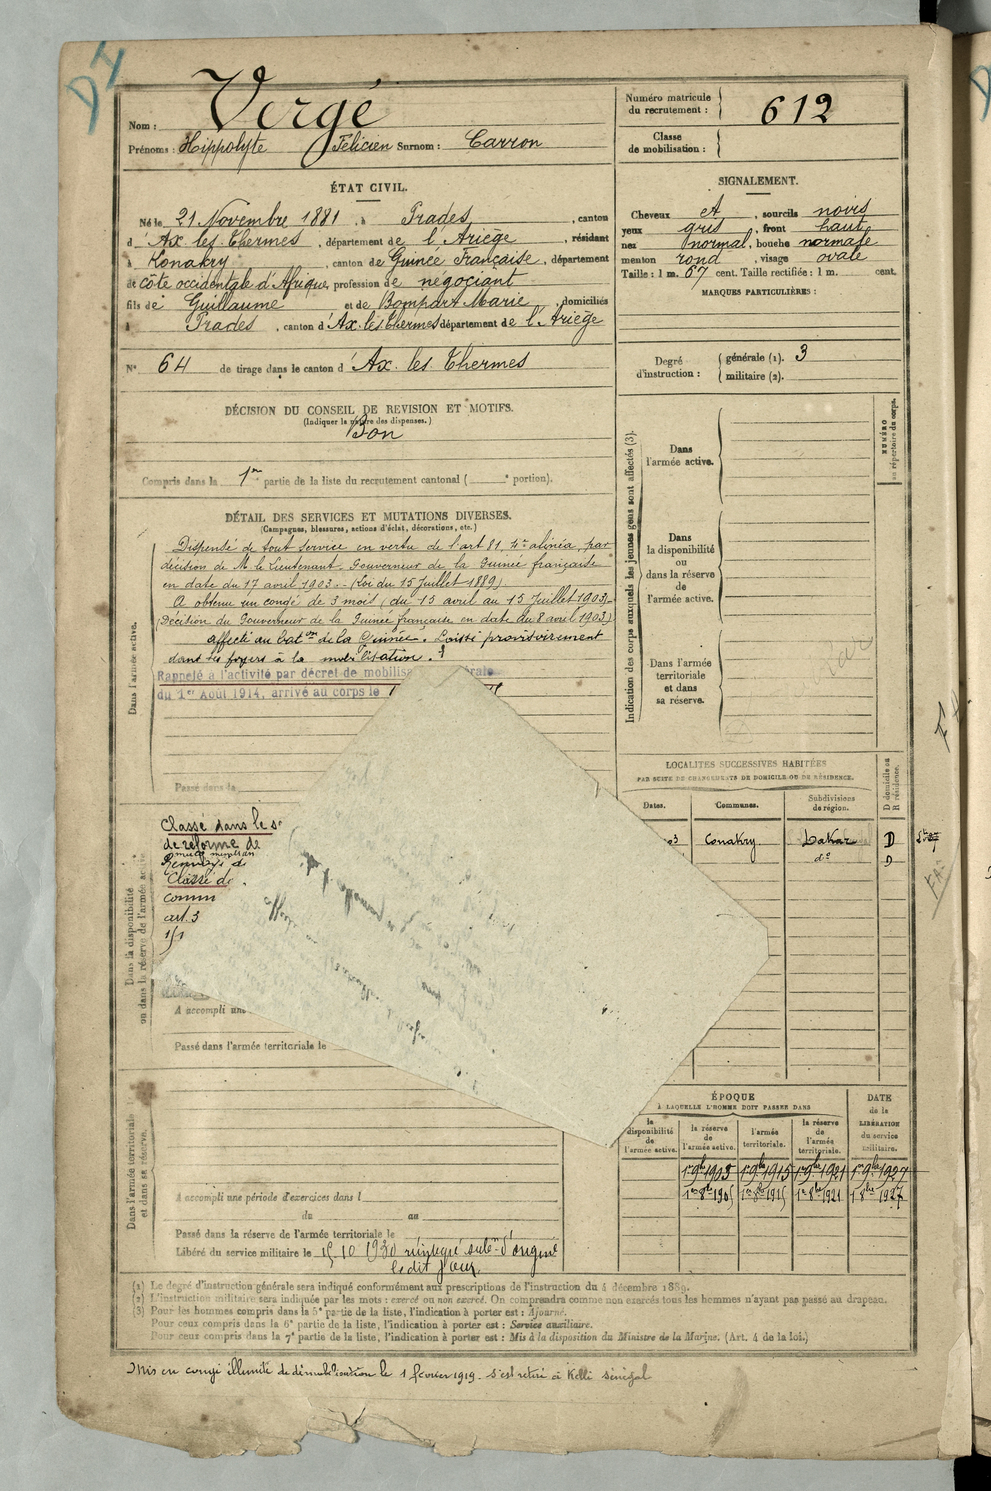 D4
Nom : Vergé
Prénoms : Hippolyte Félicien Surnom : Carron
Numéro matricule du recrutement : 612
Classe de mobilisation :
ÉTAT CIVIL.
Né le 21 Novembre 1881, à Prades, canton
d'Ax les Thermes, département de l'Ariège, résidant
à Konakry, canton de Guinée Française, département
de côte occidentale d'Afrique, profession de négociant
fils de Guillaume et de Bompart Marie, domiciliés
à Prades, canton d'Ax-les-Thermes département de l'Ariège
N° 64 de tirage dans le canton d'Ax les Thermes
SIGNALEMENT.
Cheveux et, sourcils noirs
yeux gris, front haut
nez normal, bouche normale
menton rond, visage ovale
Taille : 1 m. 67 cent. Taille rectifiée : 1 m. cent.
MARQUES PARTICULIÈRES :
Degré d'instruction : générale (1). 3
militaire (2).
DÉCISION DU CONSEIL DE REVISION ET MOTIFS.
(Indiquer la nature des dispenses.)
Bon
Compris dans la 1re partie de la liste du recrutement cantonal ( e portion).
DÉTAIL DES SERVICES ET MUTATIONS DIVERSES.
(Campagnes, blessures, actions d'éclat, décorations, etc.)
Dans l'armée active.
Dispensé de tout service en vertu de l'art 81, 4e alinéa, par
décision de M. le Lieutenant-Gouverneur de la Guinée française
en date du 17 avril 1903. - (Loi du 15 Juillet 1889)
A obtenu un congé de 3 mois (du 15 avril au 15 Juillet 1903)
(Décision du Gouverneur de la Guinée française en date du 8 avril 1903)
affecté au baton de la Guinée. Laissé provisoirement
dans ses foyers à la mobilisation.
Rappelé à l'activité par décret de mobilisa
du 1er Août 1914, arrivé au corps le
Passé dans la
Indication des corps auxquels les jeunes gens sont affectés (3).
NUMÉRO au répertoire du corps.
Dans l'armée active.
Dans la disponibilité ou dans la réserve de l'armée active.
Dans l'armée territoriale et dans sa réserve.
LOCALITÉS SUCCESSIVES HABITÉES
PAR SUITE DE CHANGEMENTS DE DOMICILE OU DE RÉSIDENCE.
Dates. Communes. Subdivisions de région. D domicile ou R résidence.
03 Conakry Dakar D
do D
Dans la disponibilité ou dans la réserve de l'armée active
Classé dans le s
de réforme de
Classé da
comm
art. 3
A accompli une
Passé dans l'armée territoriale le
Dans l'armée territoriale et dans sa réserve.
A accompli une période d'exercices dans l
du au
Passé dans la réserve de l'armée territoriale le
Libéré du service militaire le 15.10.1930 réintégré subon d'origine
ledit jour
ÉPOQUE
À LAQUELLE L'HOMME DOIT PASSER DANS
DATE de la LIBÉRATION du service militaire.
la disponibilité de l'armée active. la réserve de l'armée active. l'armée territoriale. la réserve de l'armée territoriale.
1er 9bre 1905 1er 9bre 1915 1er 9bre 1921 1er 9bre 1927
1er 8bre 1905 1er 8bre 1915 1er 8bre 1921 1er 8bre 1927
(1) Le degré d'instruction générale sera indiqué conformément aux prescriptions de l'instruction du 4 décembre 1889.
(2) L'instruction militaire sera indiquée par les mots : exercé ou non exercé. On comprendra comme non exercés tous les hommes n'ayant pas passé au drapeau.
(3) Pour les hommes compris dans la 5e partie de la liste, l'indication à porter est : Ajourné.
Pour ceux compris dans la 6e partie de la liste, l'indication à porter est : Service auxiliaire.
Pour ceux compris dans la 7e partie de la liste, l'indication à porter est : Mis à la disposition du Ministre de la Marine. (Art. 4 de la loi.)
Mis en congé illimité de démobilisation le 1 février 1919. S'est retiré à Kelli Sénégal